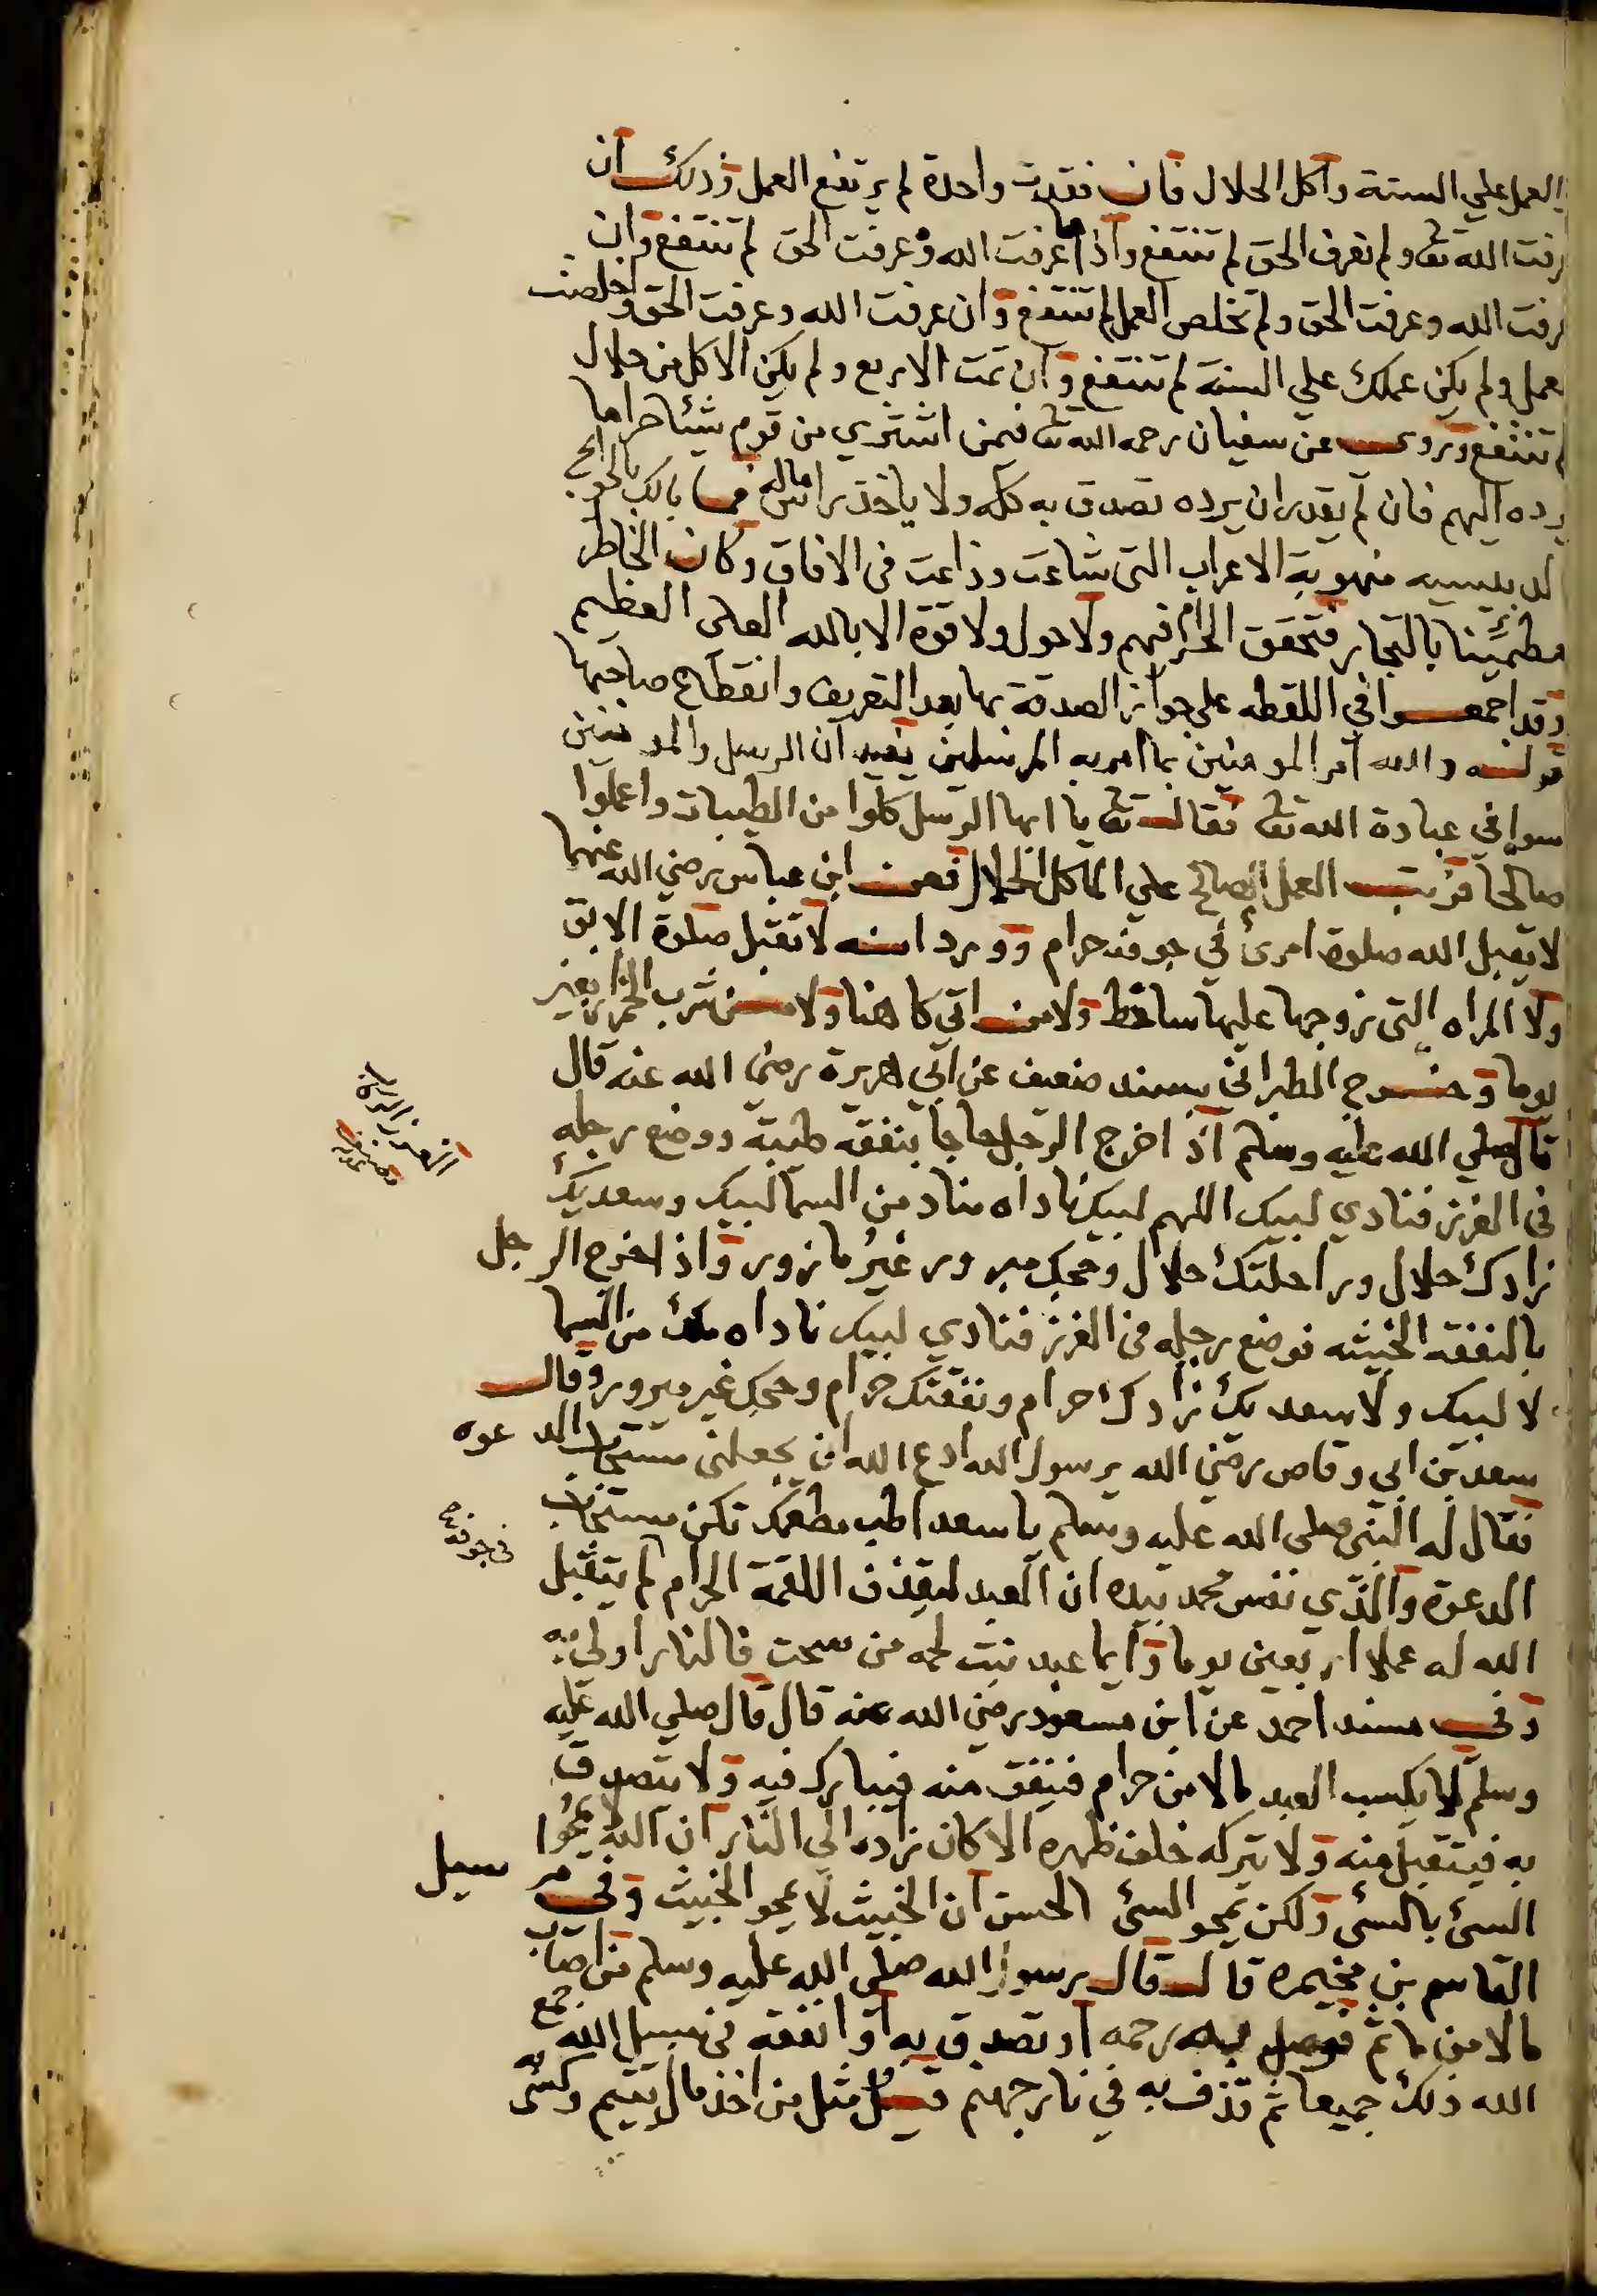 العمل علي السنة واكل الحلال فان فقدت واحدة لم يرتفع العمل وذلك ان
عرفت الله تعا ولم تعرف الحق لم تنتفع واذا ما عرفت الله وعرفت الحق لم تنتفع وان
عرفت الله وعرفت الحق ولم تخلص العمل لم تنتفع وان عرفت الله وعرفت الحق واخلصت
العمل ولم يكن عملك علي السنة لم تنتفع وان تمت الاربع ولم يكن الاكل من حلال
لم تنتفع وروي عن سفيان رحمه الله تعا فيمن اشتري من قوم شيئا حراما
يرده اليهم فان لم يقدر ان يرده تصدق به كله ولا ياخذ راس ماله فما بالك
منهوبة الاعراب التى شاعت وذاعت فى الافاق وكان الخاطر
مطمئنا بالتجار فتحقق الحرام فيهم ولا حول ولا قوة الا بالله العلى العظيم
وقد اجمعوا في اللقطه على جواز الصدقة بها بعد التعريف وانقطاع صاحبها
قوله والله امر المومنين بما امر به المرسلين يفيد ان الرسل والمومنين
سوا في عبادة الله تعا فقال تعا يا ايها الرسل كلوا من الطيبات واعملوا
صالحا فرتب العمل الصالح علي الماكل الحلال فعن ابن عباس رضي الله عنهما
لا يقبل الله صلوة امرئ في جوفه حرام وورد انه لا تقبل صلوة الابق
ولا المراه التى زوجها عليها ساخط ولا من اتي كاهنا ولا من شرب الخمر اربعين
يوما وخرج الطبراني بسند ضعيف عن ابي هريرة رضي الله عنه قال
قال صلي الله عليه وسلم اذا خرج الرجل حاجا بنفقه طيبة ووضع رجله
في الغرز فنادي لبيك اللهم لبيك ناداه مناد من السما لبيك وسعديك
زادك حلال وراحلتك حلال وحجك مبرور غير مازور واذا خرج الرجل
بالنفقه الخبيثه فوضع رجله فى الغرز فنادي لبيك ناداه ملك من السما
لا لبيك ولا سعديك زادك حرام ونفقتك حرام وحجك غير مبرور وقال
سعد بن ابي وقاص رضي الله يرسول الله ادع الله ان يجعلنى مستجاب الدعوه
فقال له النبى صلى الله عليه وسلم يا سعد اطب مطعمك تكن مستجاب
الدعوة والذي نفس محمد بيده ان العبد ليقذف اللقمة الحرام لم يتقبل
في جوفه
الله له عملا اربعين يوما وايما عبد نبت لحمه من سحت فالنار اولي به
وفي مسند احمد عن ابن مسعود رضي الله عنه قال قال صلي الله عليه
وسلم لا يكسب العبد مالا من حرام فينفق منه فيبارك فيه ولا يتصدق
به فيتقبل منه ولا يتركه خلف ظهره الا كان زاده الي النار ان الله لا يمحوا
السئ بالسئ ولكن يمحو السئ الحسن ان الخبيث لا يمحو الخبيث وفي مرسيل
القاسم بن مخيمره قال قال رسول الله صلى الله عليه وسلم من اصاب
مالا من ماثم فوصل به رحمه او تصدق به او انفقه فى سبيل الله جمع
الله ذلك جميعا ثم قذف به في نار جهنم قيل مثل من اخذ مال يتيم وكسى به
الغرز الركاب